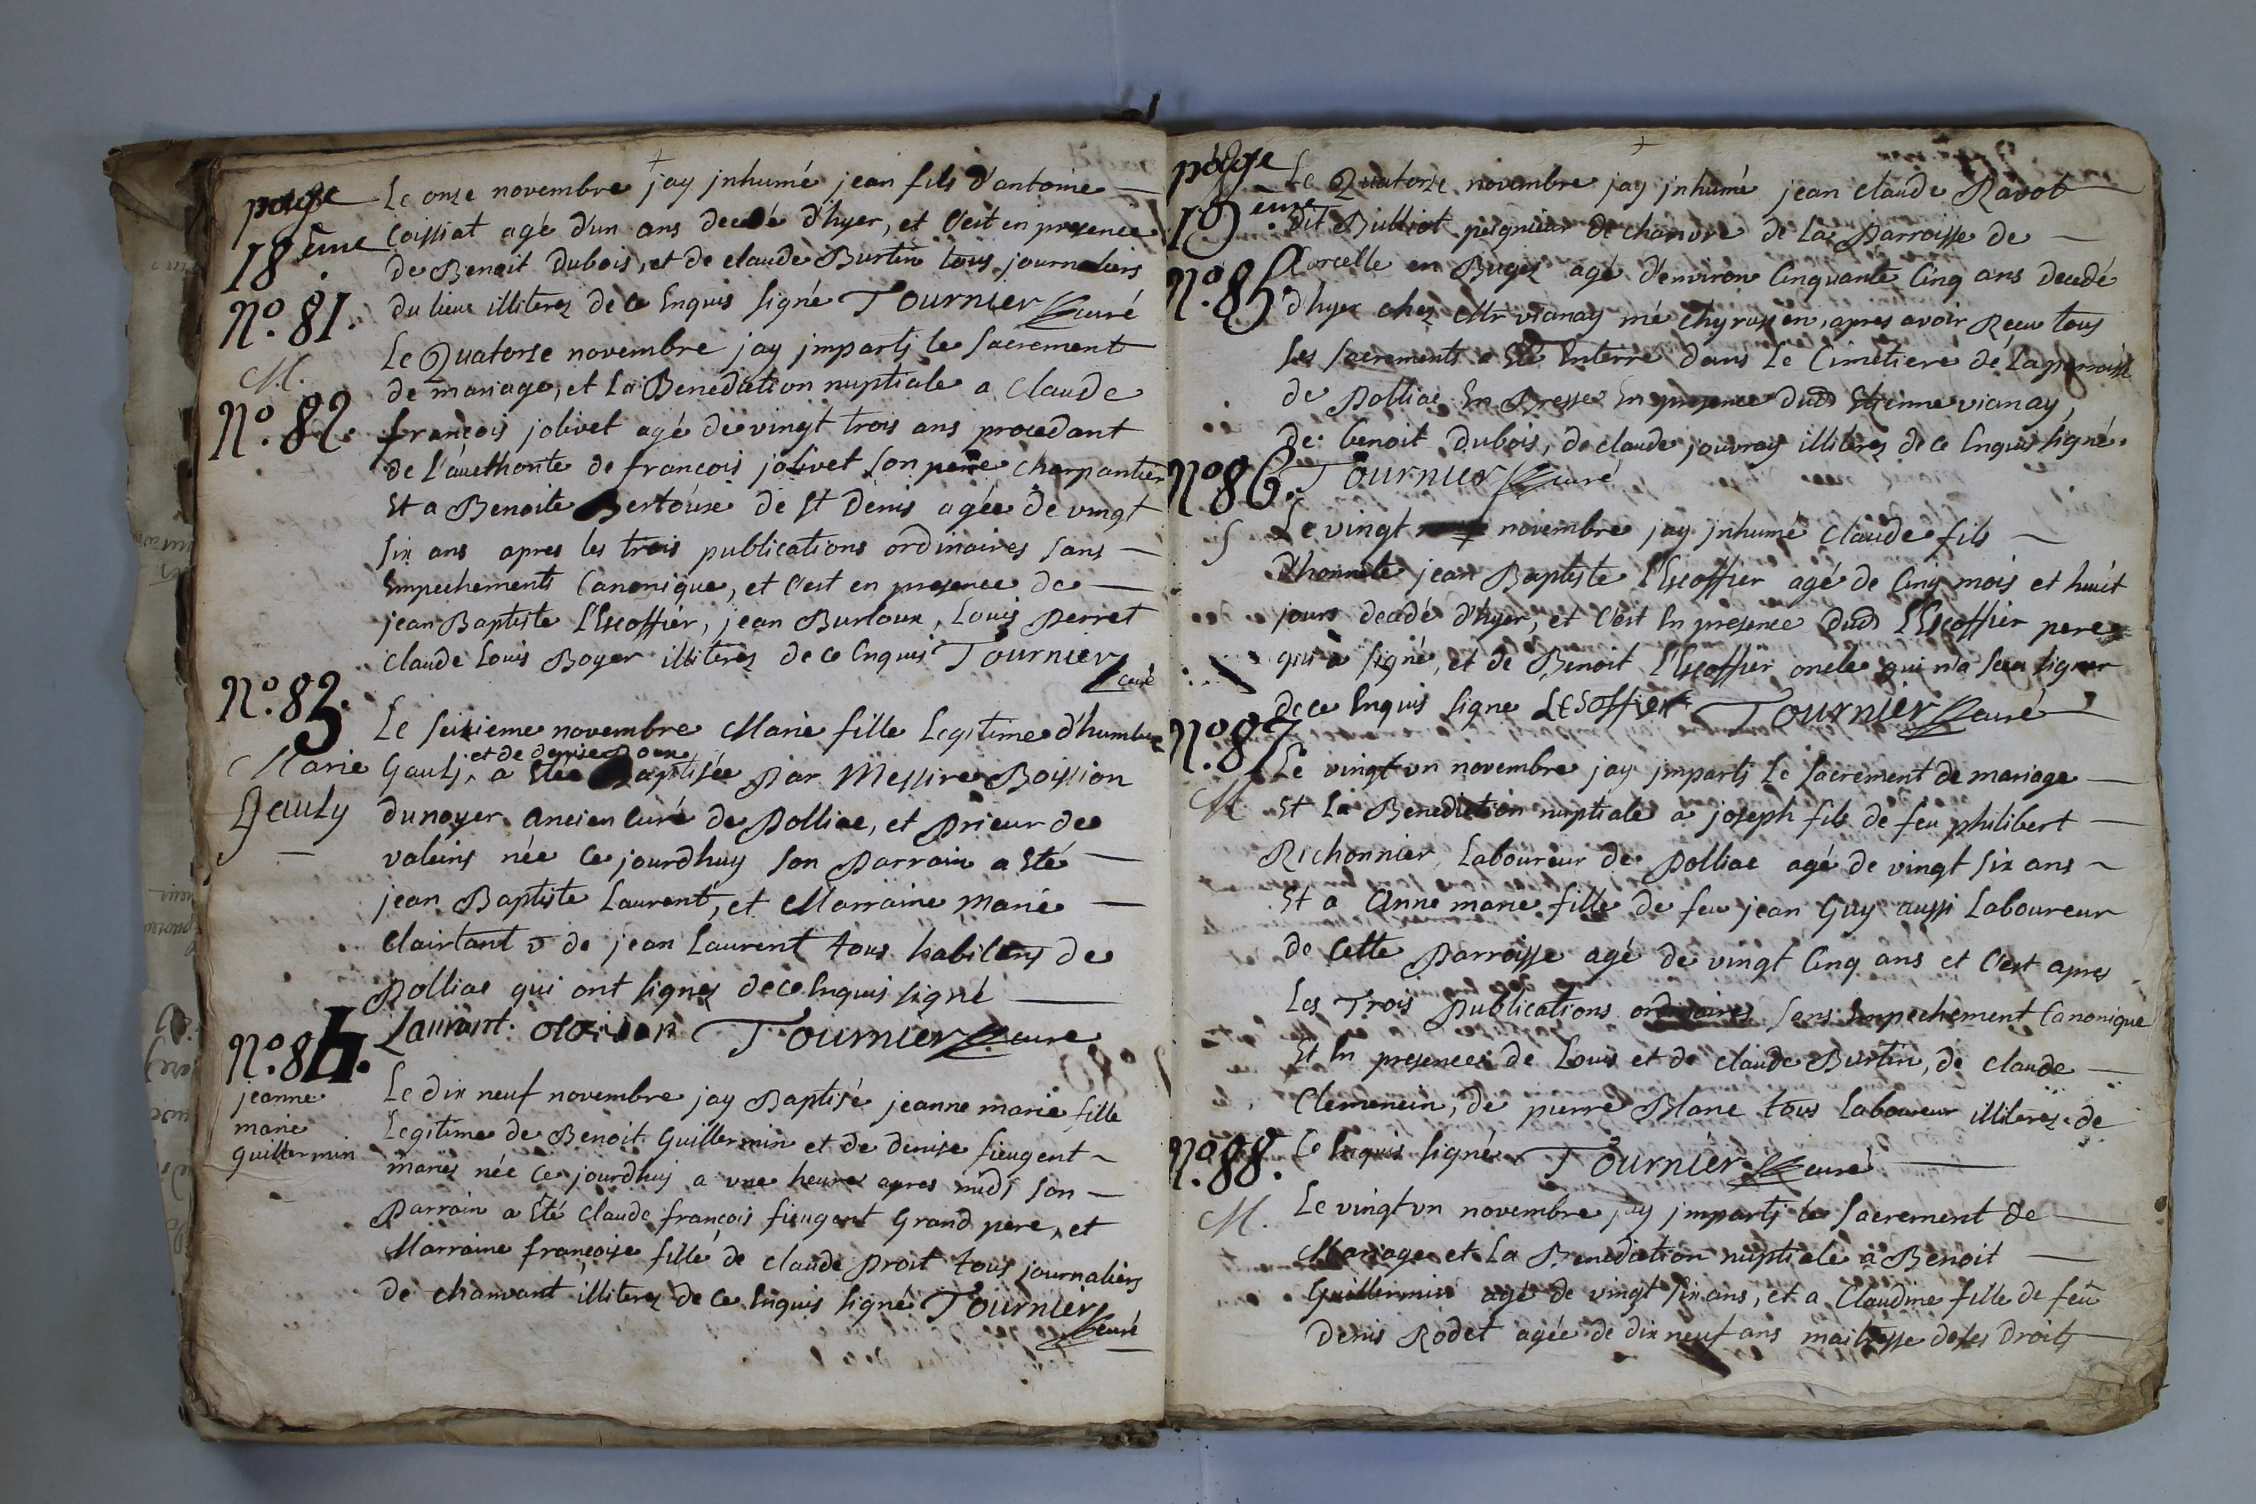 page
18 eme
Le onze novembre jay jnhumé jean fils d'antoine
Coissiat agé d'un ans decedé d'hyer, et C'est en presence
de Benoit Dubois, et de claude Burtin tous journaliers
N.º 81.
du lieu illiterez de ce Enquis signé Tournier curé
M.
N.º 82.
Le Quatorse novembre jay jmparti le Sacrement
de mariage, et La Benediction nuptiale a Claude
françois jolivet agé de vingt trois ans procedant
de L'authorite de francois jolivet son pere charpantier
Et a Benoite Bertoux de St Denis agée de vingt
six ans apres les trois publications ordinaires sans
Empechements Canonique, et C'est en presence de
jean Baptiste L'Escoffier, jean Burtoux, Louis Perret
Claude Louis Boyer illiterez de ce Enquis Tournier
curé
N.º 83.
Marie
Gauly
Le seizieme novembre Marie fille Legitime d'humber
et de denise
Gauly, a Etée Baptisée Par Messire Boission
dunoyer ancien Curé de Polliac, et Prieur de
valeins née Ce jourdhuy son Parrain a Eté
jean Baptiste Laurent, et Marraine Marie
Clairtant de jean Laurent tous habitens de
Polliac qui ont signez de ce Enquis signé
Laurant. Tournier curé
N.º 84.
jeanne
marie
guillermin
Le dix neuf novembre jay Baptisé jeanne marie fille
Legitime de Benoit Guillermin et de denise fieugent
mariez née Ce jourdhuy a vne heure apres midi son
Parrain a Eté Claude françois fieugent Grand pere, et
Marraine françoise fille de claude Proit tous journaliers
de chanvant illiterez de Ce Enquis signé Tournier
curé
page
19 eme
N.º 85
Le Quatorze novembre jay jnhumé jean claude Ravot
dit Bulliot peignieur de chanvre de La Parroisse de
Corcelle en Bugez agé d'environ Cinquante Cinq ans decedé
d'hyer chez Mr vianay mé chyrugien, apres avoir Receu tous
les sacrements a Eté Enterré dans Le Cimetiere de Laparoisse
de Polliac En Bresse En presence dud Etienne vianay,
de benoit Dubois, de claude jouvray illiterez de ce Enquis signé.
N.º 86.
Tournier curé
S
Le vingt novembre jay jnhumé Claude fils
d'honnete jean Baptiste L'Escoffier agé de Cinq mois et huit
jours decedé d'hyer, et C'est En presence dud L'Escoffier pere
qui a signé, et de Benoit L'Escoffier oncle qui n'a sceu signer
de ce Enquis signé Lescoffier Tournier curé
N.º 87
M
Le vingt vn novembre jay jmparti Le sacrement de mariage
Et La Benediction nuptiale a joseph fils de feu philibert
Richonnier Laboureur de Polliac agé de vingt six ans
Et a Anne marie fille de feu jean Guy aussi Laboureur
de Cette Parroisse agé de vingt Cinq ans et C'est apres
Les Trois Publications ordinaires sans Empechement Canonique
Et En presence de Louis et de claude Burtin, de claude
Clemencin, de pierre Blanc tous Laboureur illiterez de
N.º 88.
Ce Enquis signé Tournier curé
M.
Le vingt vn novembre jay jmparti le sacrement de
Mariage et La Benediction nuptiale a Benoit
Guillermin agé de vingt six ans, et a Claudine fille de feu
Denis Rodet agée de dix neuf ans maitresse de ses Droits